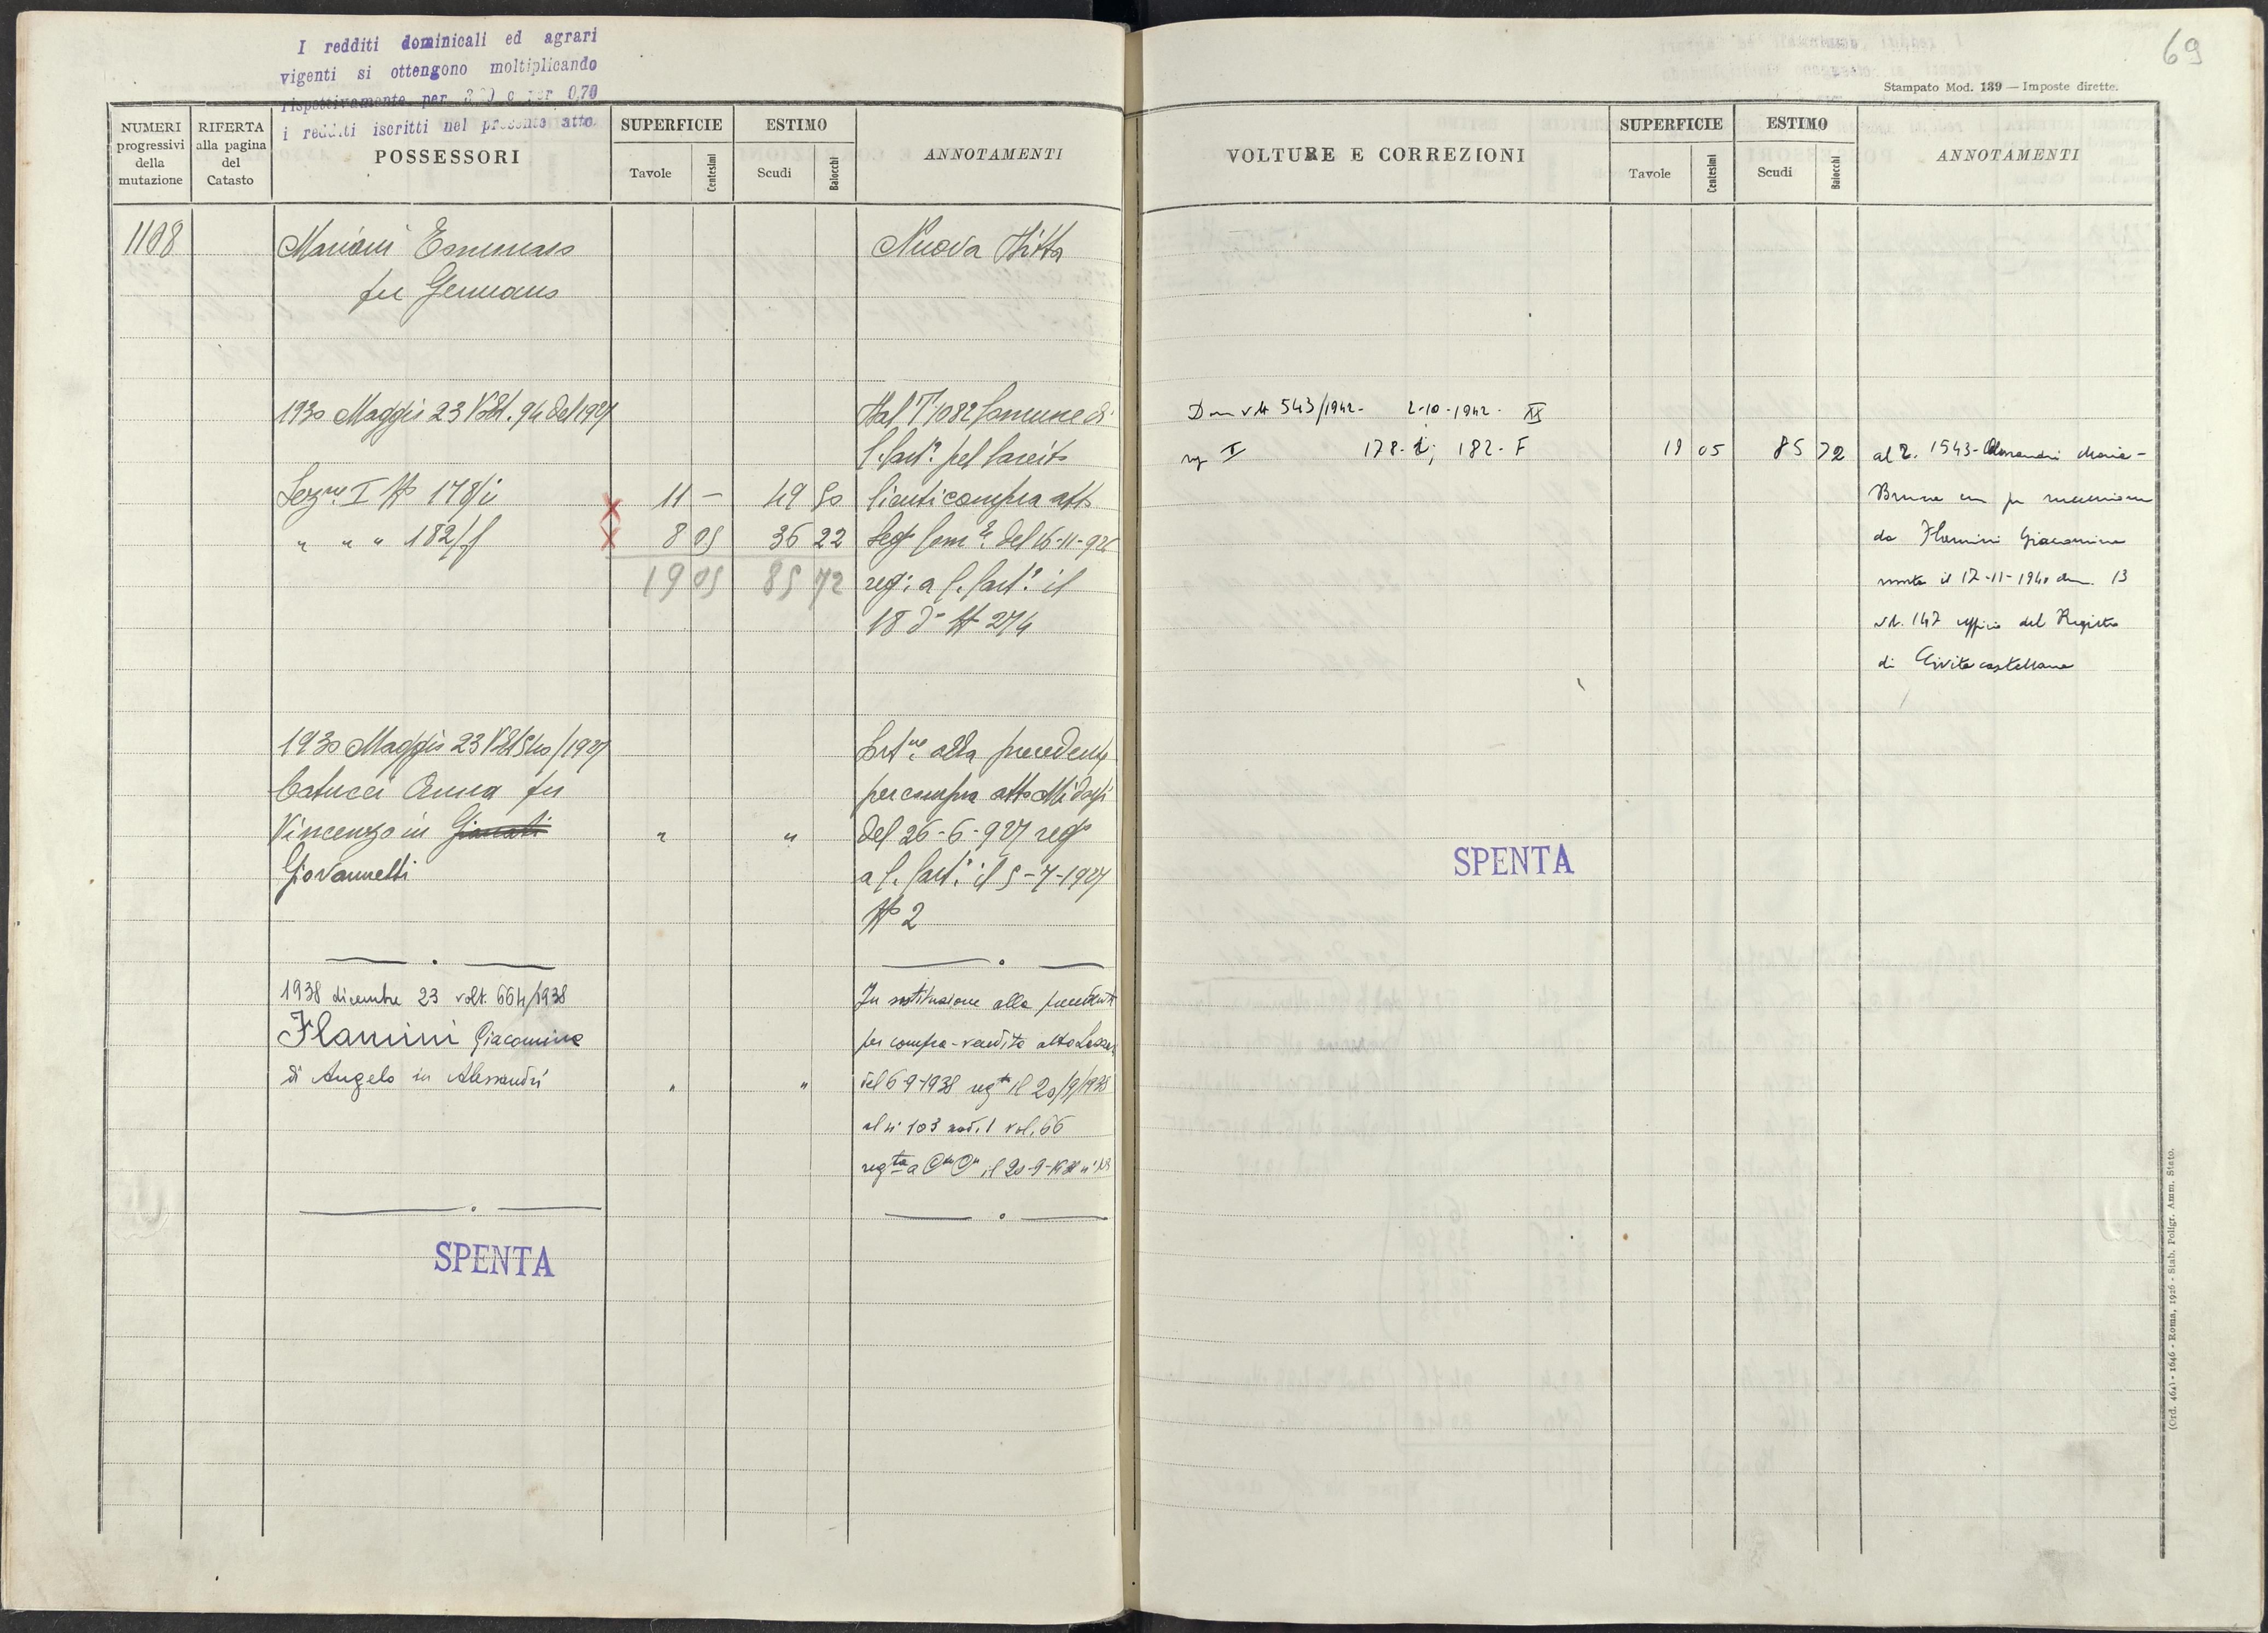 I redditi dominicali ed agrari
vigenti si ottengono moltiplicando
rispettivamente per e per 0,70
i redditi iscritti nel presente atto.
NUMERI progressivi della mutazione
RIFERTA alla pagina del Catasto
POSSESSORI
SUPERFICIE
Tavole
Centesimi
ESTIMO
Scudi
Baiocchi
ANNOTAMENTI
1108
Mariani
fu Germano
Nuova Ditta
1930 Maggio 23 Volt. 94 del 1927
Dal T 1082 Comune di
C. Cast.ª pel
Sez.ne I Nº 178/i 11 — 49 50
compra atto
" " " 182/f 8 05 36 22
Seg. Com.le del 16-11-926
19 05 85 72
reg: a C. Cast.ª il
18 dº Nº 274
1930 Maggio 23 Volt 540/1927
Catucci Anna fu
Vincenzo in
Giovannetti
" "
Sost.ne alla precedente
per compra atto Midossi
del 26-6-927 regº
a C. Cast.ª il 5-7-1927
Nº 2
1938 dicembre 23 volt. 664/1938
Flamini Giacomina
di Angelo in Alessandri
" "
In sostituzione alla precedente
per compra-vendita atto
del 6-9-1938 reg.to il 20/9/1938
al nº 103 mod. 1 vol. 66
reg.ta a il 20-9-1938 nº
SPENTA
69
Stampato Mod. 139 — Imposte dirette.
VOLTURE E CORREZIONI
SUPERFICIE
Tavole
Centesimi
ESTIMO
Scudi
Baiocchi
ANNOTAMENTI
Dom vlt 543/1942- 2-10-1942- XX
sez I 178-i; 182-F 19 05 85 72
al R. 1543- Alessandri Maria-
Bruna per successione
da Flamini Giacomina
morta il 17-11-1940 den. 13
vl. 147 ufficio del Registro
di Civitacastellana
SPENTA
(Ord. 464) - 1646 - Roma, 1926 - Stab. Poligr. Amm. Stato.